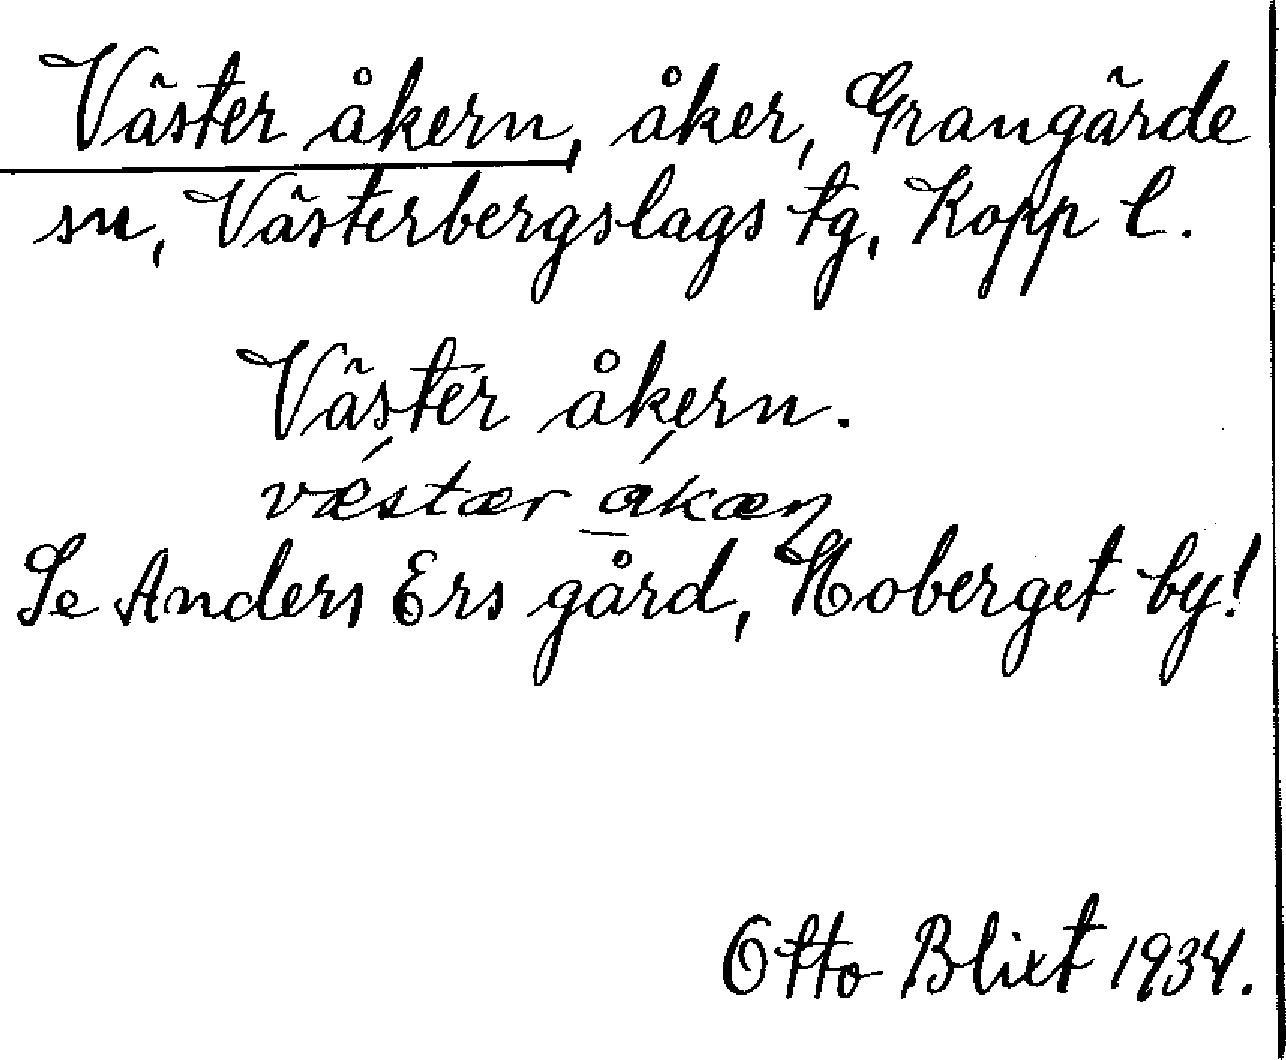 Väster åkern, åker, Grangärde
sn, Västerbergslags tg, Kopp l.
Väster åkern.
væstær
Se Anders Ers gård, Moberget by!
Otto Blixt 1934.